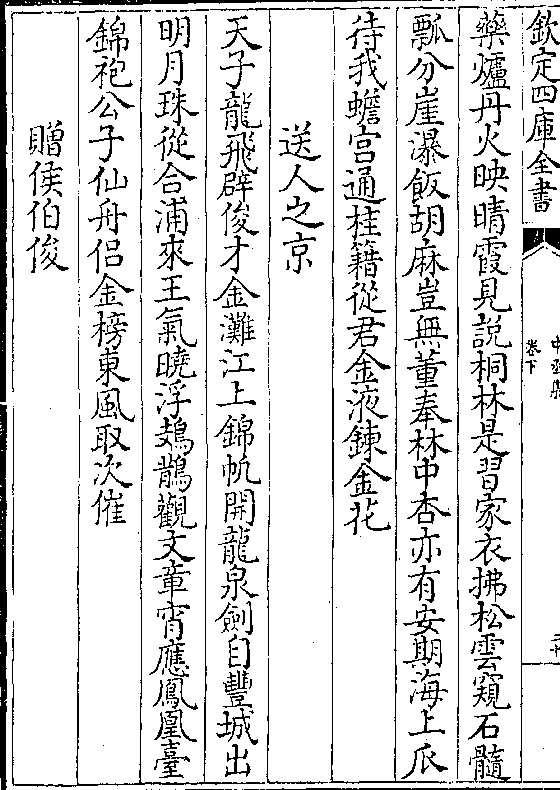 欽定四庫全書
卷下
藥爐丹火映晴霞見説桐林是習家衣拂松雲窺石髓
瓢分崖瀑飯胡麻豈無董奉林中杏亦有安期海上瓜
待我蟾宫通桂籍從君金液鍊金花
送人之京
天子龍飛辟俊才金灘江上錦帆開龍泉劍自豐城出
明月珠從合浦來王氣曉浮鳷鵲觀文章宵應鳳凰臺
錦袍公子仙舟侣金榜東風取次催
贈侯伯俊